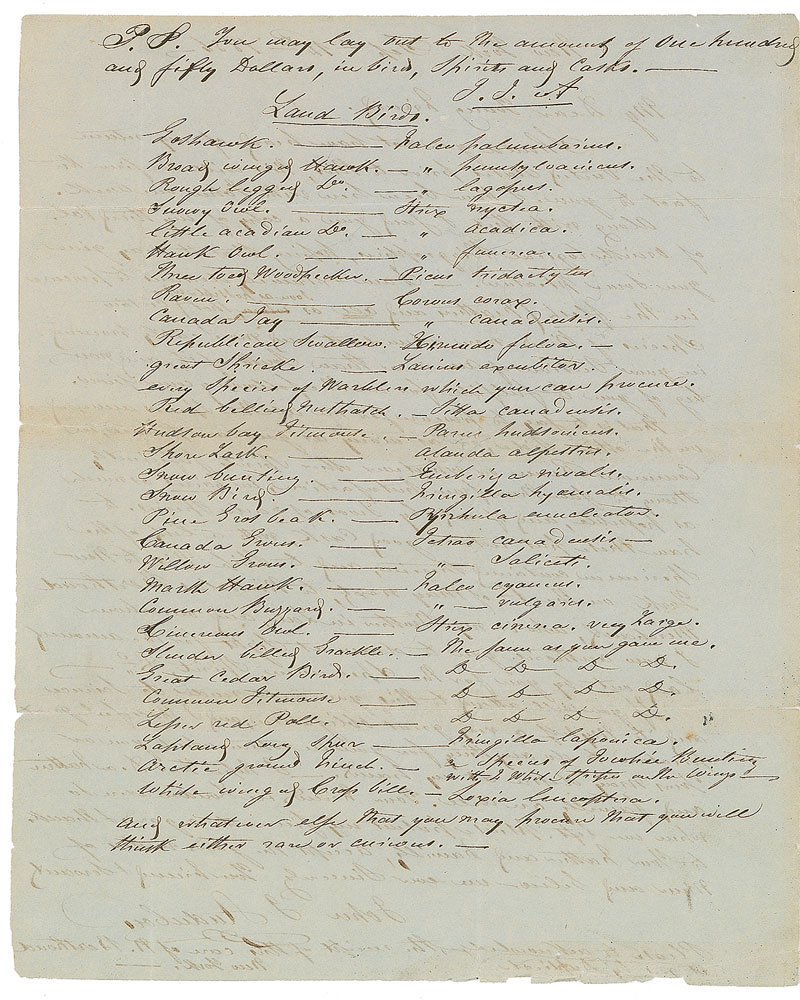 P. S. You may lay out to the amount of One hundred
and fifty Dollars, in bird, Spirits and Casks. —
J. J. A
Land Birds.
Goshawk. — Falco palumbarius.
Broad winged Hawk. — " pennsylvanicus.
Rough legged Do. — " lagopus.
Snowy Owl. — Strix nyctea.
little acadian Do. — " acadica.
Hawk Owl. — " funerea. —
Three toed Woodpecker. — Picus tridactylus
Raven. — Corvus corax.
Canada Jay — " canadensis.
Republican Swallow. Hirundo fulva. —
great Shrike. — Lanius excubitor.
every Species of Warblers which you can procure.
Red bellied Nuthatch. — Sitta canadensis.
Hudson bay Titmouse. — Parus hudsonicus.
Shore Lark. — alauda alpestris.
Snow bunting. — Emberiza nivalis.
Snow Bird. — Fringilla hyemalis.
Pine Grosbeak. — Pyrrhula enucleator.
Canada Grous. — Tetrao canadensis —
Willow Grous. — " — Saliceti.
Marsh Hawk. — Falco cyaneus.
Common Buzzard. — " — vulgaris.
Cinereous Owl. — Strix cinerea. very Large.
Slender billed Grackle. — The same as you gave me.
Great Cedar Bird. — D D D D.
Common Titmouse — D D D D.
Lesser red Poll. — D D D D.
Lapland Long spur — Fringilla laponica.
Arctic ground Finch. — a Species of Towhee Bunting
with 2 White stripes on the Wings —
White winged Cross bill. — Loxia leucoptera.
And whatever else that you may procure that you will
think either rare or curious. —